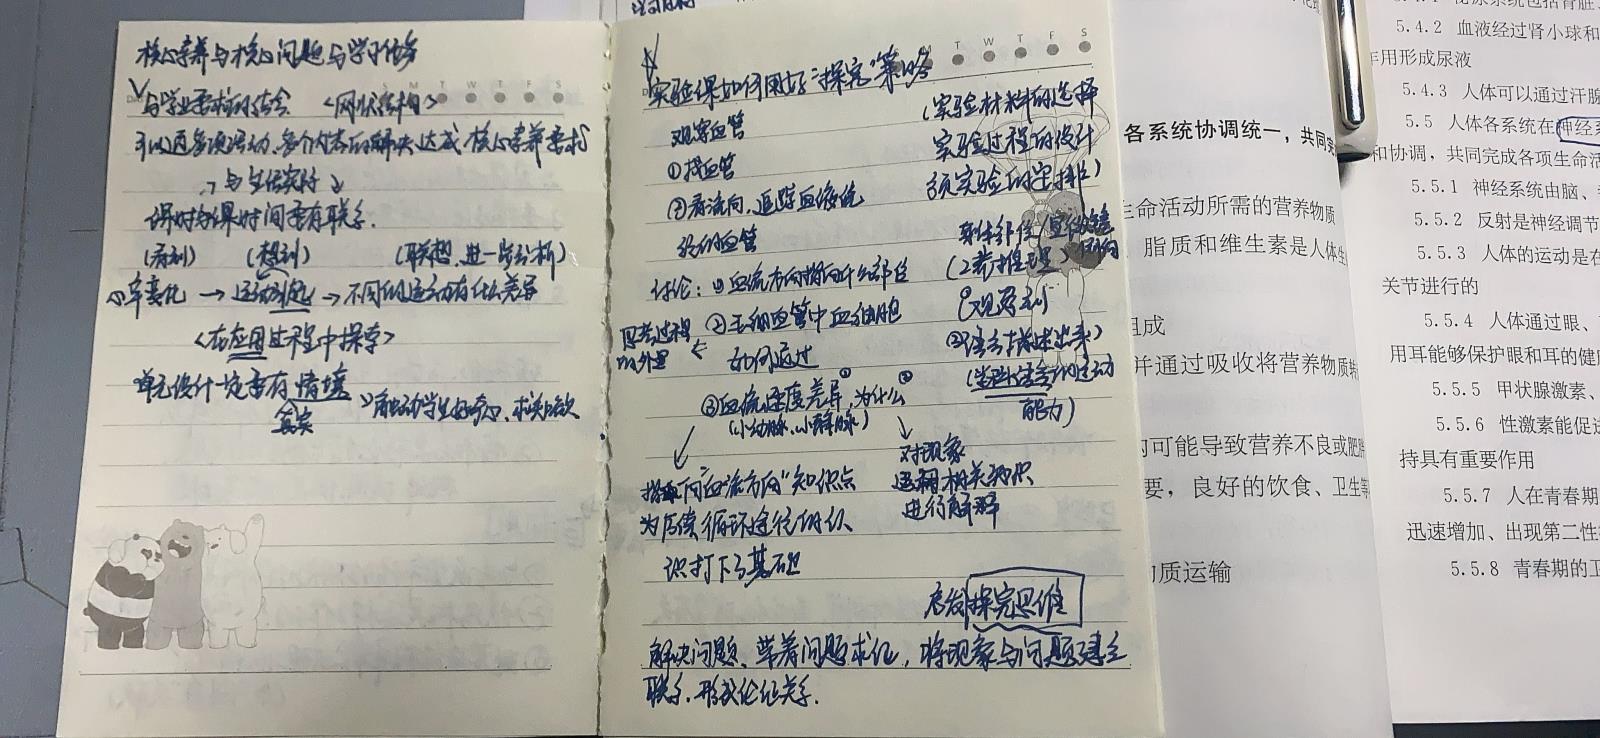 核心素养与核心问题与学习任务
与学业要求的结合 <网状结构>
可以通多项活动、多个内容的解决达成核心素养要求
与生活实际
课时与课时间要有联系.
(看到) (想到) (联想,进一步分析)
→ 运动引起 → 不同的运动有什么差异
<在应用过程中探索>
单元设计一定要有情境
真实
触动学生好奇心、求知欲
实验课如何用好"探究"策略
T W T F S
观察血管
①找血管
②看流向,追踪血液流
经的血管
讨论:①血流方向指向什么部位
②毛细血管中血细胞
如何通过
思考过程
③血流速度差异,为什么
(小动脉、小静脉)
"血流方向"知识点
为后续循环途径的认
识打下了基础
对现象
运用相关知识
进行解释
(实验材料的选择
实验过程的设计
预实验的安排)
(观察到
②语言描述出来)
能力)
启发探究思维
解决问题、带着问题求证,将现象与问题建立
联系.形成论证关系.
各系统协调统一,共同完
生命活动所需的营养物质
脂质和维生素是人体生
组成
并通过吸收将营养物质转
可能导致营养不良或肥胖
要,良好的饮食、卫生等
物质运输
5.4.2 血液经过肾小球和
作用形成尿液
5.4.3 人体可以通过汗腺
5.5 人体各系统在神经系
和协调,共同完成各项生命活
5.5.1 神经系统由脑、
5.5.2 反射是神经调节
5.5.3 人体的运动是在
关节进行的
5.5.4 人体通过眼、
用耳能够保护眼和耳的健
5.5.5 甲状腺激素、
5.5.6 性激素能促进
持具有重要作用
5.5.7 人在青春期
迅速增加、出现第二性
5.5.8 青春期的卫